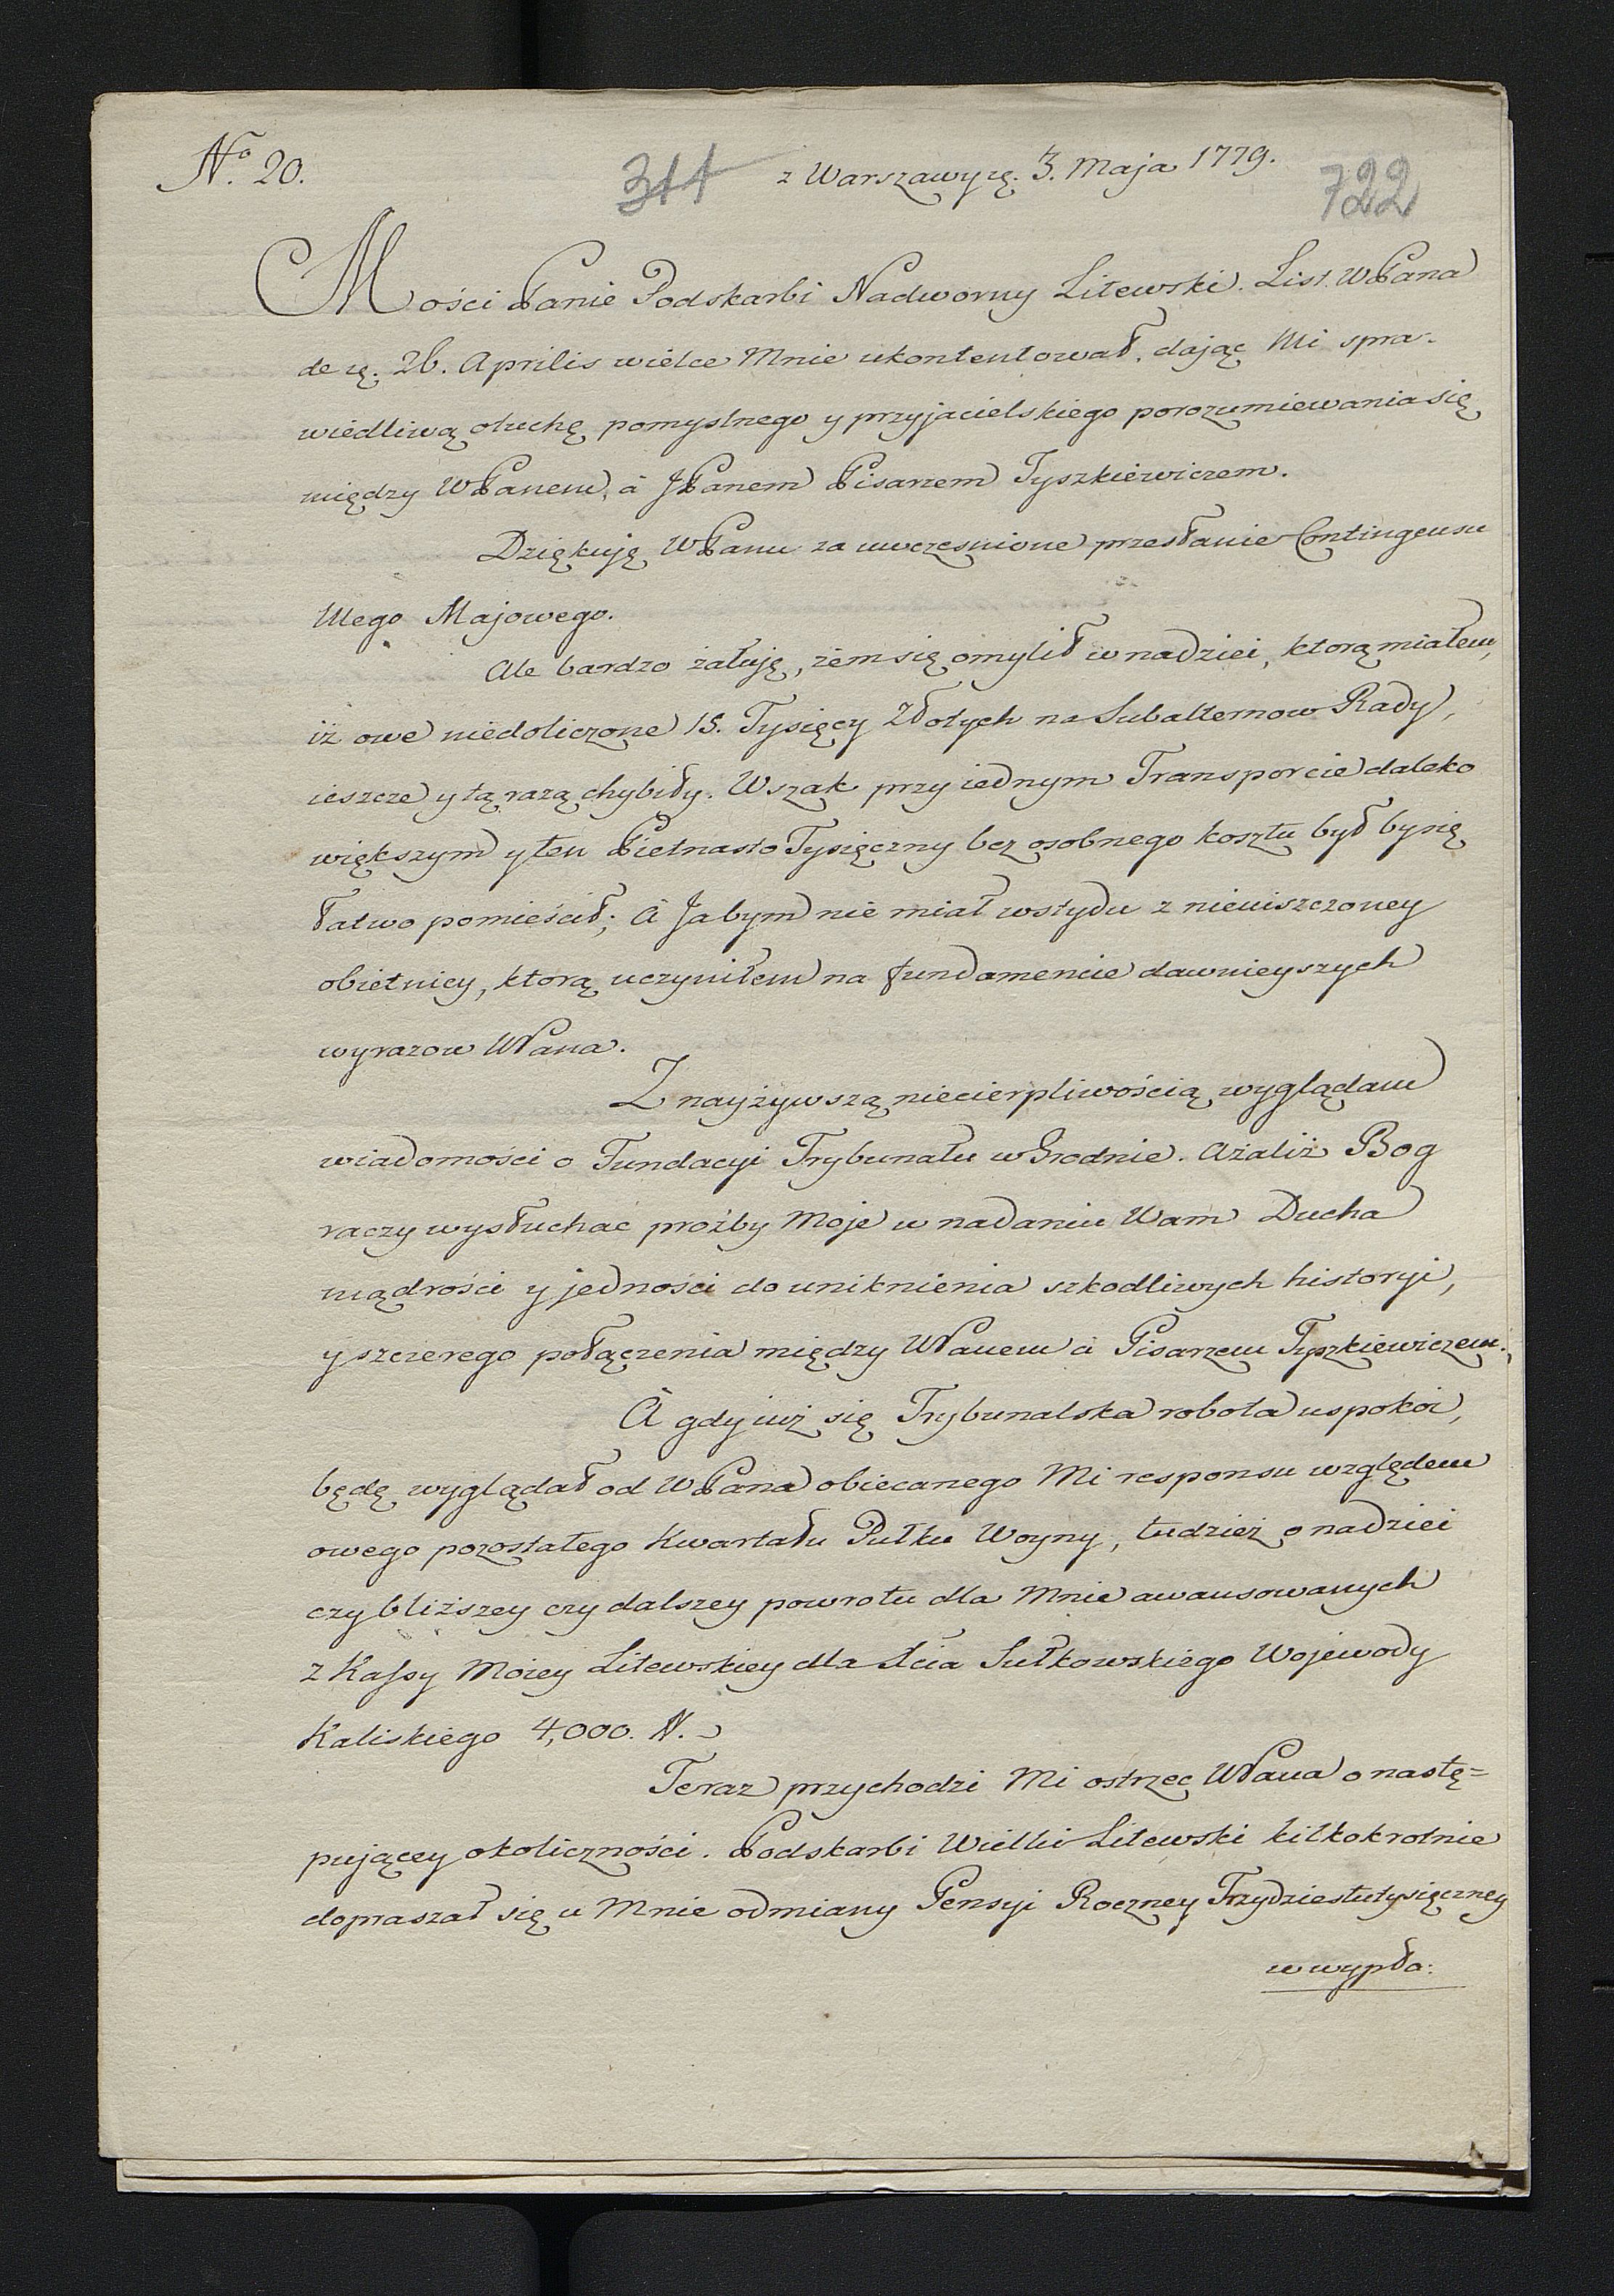 No. 20.
311
z Warszawy zę. 3. Maja 1779.
722
Mości Panie Podskarbi Nadworny Litewski. List WPana
de zę. 26. Aprilis wielce Mnie ukontentował, dając Mi spra-
wiedliwą otuchę pomyslnego y przyjacielskiego porozumiewania się
między WPanem, à JPanem Pisarzem Tyszkiewiczem.
Dziękuję WPanu za uwczesnione przesłanie Contingensu
Mego Majowego.
Ale bardzo żałuję, żem się omylił w nadziei, ktorą miałem,
iż owe niedoliczone 15. Tysięcy Złotych na Subalternow Rady,
ieszcze y tą razą chybiły. Wszak przy iednym Transporcie daleko
większym y ten Pietnasto Tysięczny bez osobnego kosztu był by się
łatwo pomieścił; à Jabym nie miał wstydu z nieuiszczoney
obietnicy, ktorą uczyniłem na fundamencie dawnieyszych
wyrazow WPana.
Z nayżywszą niecierpliwością wyglądam
wiadomości o Fundacyi Trybunału w Grodnie. Ażaliż Bog
raczy wysłuchac proźby Moje w nadaniu Wam Ducha
mądrości y jedności do uniknienia szkodliwych historyi,
y szczerego połączenia między WPanem à Pisarzem Tyszkiewiczem.
À gdy iuż się Trybunalska robota uspokoi,
będę wyglądał od WPana obiecanego Mi responsu względem
owego pozostałego Kwartału Pułku Woyny, tudzież o nadziei
czy bliższey czy dalszey powrotu dla Mnie awansowanych
z Kassy Moiey Litewskiey dla Xcia Sułkowskiego Wojewody
Kaliskiego 4,000. #.
Teraz przychodzi Mi ostrzec WPana o nastę=
pującey okoliczności. Podskarbi Wielki Litewski kilkokrotnie
dopraszał się u Mnie odmiany Pensyi Roczney Trzydziestutysięczney
w wypła: